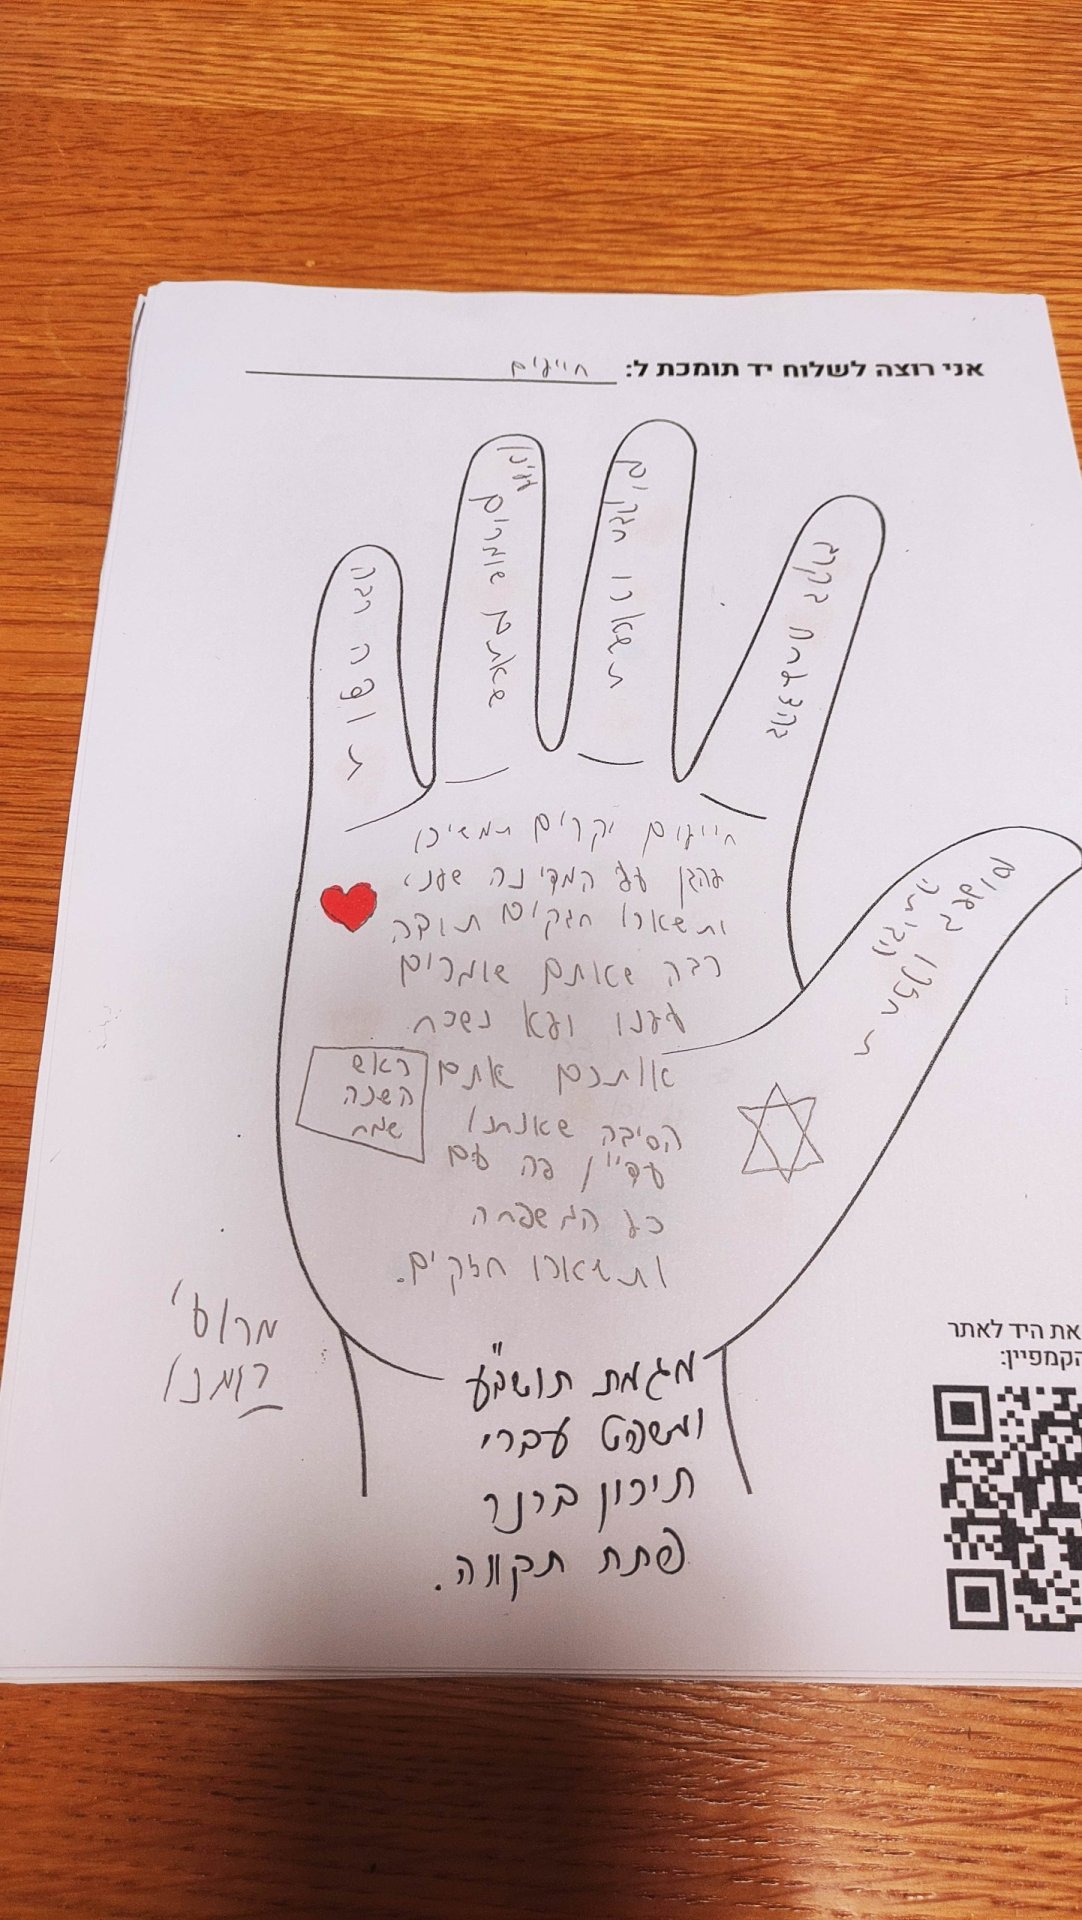 אני רוצה לשלוח יד תומכת ל: חיילים
תודה רבה
שאתם שומרים
עלינו
תשארו חזקים
בהצלחה בקרב
תחזרו בשלום
הביתה
חיילים יקרים תמשיכו
להגן על המדינה שלנו
ותשארו חזקים תודה
רבה שאתם שומרים
עלינו ולא נשכח
אותכם אתם
הסיבה שאנחנו
עדיין פה עם
כל המשפחה
ותשארו חזקים.
ראש
השנה
שמח
מגמת תושב"ע
ומשפט עברי
תיכון ברנר
פתח תקווה.
את היד לאתר
הקמפיין: